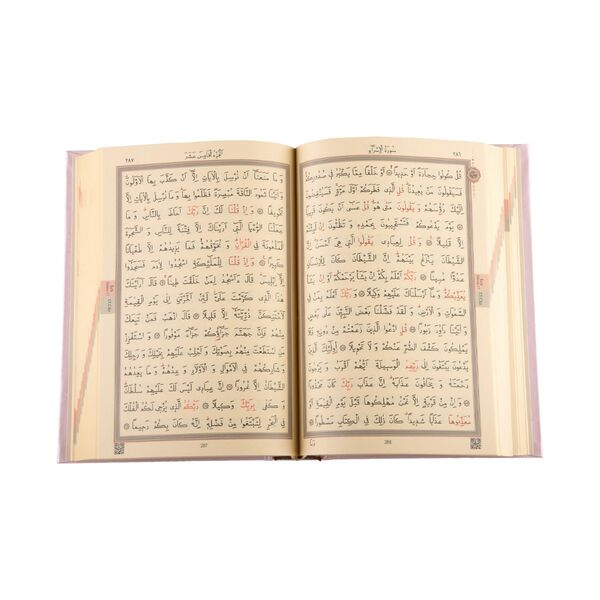 ٢٨٦ سورة الإسراء
قُلْ كُونُوا حِجَارَةً اَوْ حَدِيدًا ۝ اَوْ خَلْقًا مِمَّا يَكْبُرُ فِي صُدُورِكُمْ
فَسَيَقُولُونَ مَنْ يُعِيدُنَا قُلِ الَّذِي فَطَرَكُمْ اَوَّلَ مَرَّةٍ فَسَيُنْغِضُونَ
اِلَيْكَ رُؤُسَهُمْ وَيَقُولُونَ مَتٰى هُوَ قُلْ عَسٰى اَنْ يَكُونَ قَرِيبًا ۝
يَوْمَ يَدْعُوكُمْ فَتَسْتَجِيبُونَ بِحَمْدِهِ وَتَظُنُّونَ اِنْ لَبِثْتُمْ
اِلَّا قَلِيلًا ۝ وَقُلْ لِعِبَادِي يَقُولُوا الَّتِي هِيَ اَحْسَنُ اِنَّ
الشَّيْطَانَ يَنْزَغُ بَيْنَهُمْ اِنَّ الشَّيْطَانَ كَانَ لِلْاِنْسَانِ
عَدُوًّا مُبِينًا ۝ رَبُّكُمْ اَعْلَمُ بِكُمْ اِنْ يَشَأْ يَرْحَمْكُمْ اَوْ اِنْ يَشَأْ
يُعَذِّبْكُمْ وَمَا اَرْسَلْنَاكَ عَلَيْهِمْ وَكِيلًا ۝ وَرَبُّكَ اَعْلَمُ بِمَنْ فِي
السَّمٰوَاتِ وَالْاَرْضِ وَلَقَدْ فَضَّلْنَا بَعْضَ النَّبِيِّنَ عَلٰى بَعْضٍ
وَاٰتَيْنَا دَاوُدَ زَبُورًا ۝ قُلِ ادْعُوا الَّذِينَ زَعَمْتُمْ مِنْ دُونِهِ فَلَا
يَمْلِكُونَ كَشْفَ الضُّرِّ عَنْكُمْ وَلَا تَحْوِيلًا ۝ اُولٰئِكَ الَّذِينَ
يَدْعُونَ يَبْتَغُونَ اِلٰى رَبِّهِمُ الْوَسِيلَةَ اَيُّهُمْ اَقْرَبُ وَيَرْجُونَ
رَحْمَتَهُ وَيَخَافُونَ عَذَابَهُ اِنَّ عَذَابَ رَبِّكَ كَانَ مَحْذُورًا ۝
وَاِنْ مِنْ قَرْيَةٍ اِلَّا نَحْنُ مُهْلِكُوهَا قَبْلَ يَوْمِ الْقِيٰمَةِ اَوْ
مُعَذِّبُوهَا عَذَابًا شَدِيدًا كَانَ ذٰلِكَ فِي الْكِتَابِ مَسْطُورًا ۝
286
الجزء الخامس عشر ٢٨٧
وَمَا مَنَعَنَا اَنْ نُرْسِلَ بِالْاٰيَاتِ اِلَّا اَنْ كَذَّبَ بِهَا الْاَوَّلُونَ
وَاٰتَيْنَا ثَمُودَ النَّاقَةَ مُبْصِرَةً فَظَلَمُوا بِهَا وَمَا نُرْسِلُ بِالْاٰيَاتِ اِلَّا
تَخْوِيفًا ۝ وَاِذْ قُلْنَا لَكَ اِنَّ رَبَّكَ اَحَاطَ بِالنَّاسِ وَمَا
جَعَلْنَا الرُّءْيَا الَّتِي اَرَيْنَاكَ اِلَّا فِتْنَةً لِلنَّاسِ وَالشَّجَرَةَ
الْمَلْعُونَةَ فِي الْقُرْاٰنِ وَنُخَوِّفُهُمْ فَمَا يَزِيدُهُمْ اِلَّا طُغْيَانًا
كَبِيرًا ۝ وَاِذْ قُلْنَا لِلْمَلٰئِكَةِ اسْجُدُوا لِاٰدَمَ فَسَجَدُوا
اِلَّا اِبْلِيسَ قَالَ ءَاَسْجُدُ لِمَنْ خَلَقْتَ طِينًا ۝ قَالَ اَرَاَيْتَكَ
هٰذَا الَّذِي كَرَّمْتَ عَلَيَّ لَئِنْ اَخَّرْتَنِ اِلٰى يَوْمِ الْقِيٰمَةِ
لَاَحْتَنِكَنَّ ذُرِّيَّتَهُ اِلَّا قَلِيلًا ۝ قَالَ اذْهَبْ فَمَنْ تَبِعَكَ
مِنْهُمْ فَاِنَّ جَهَنَّمَ جَزَاؤُكُمْ جَزَاءً مَوْفُورًا ۝ وَاسْتَفْزِزْ
مَنِ اسْتَطَعْتَ مِنْهُمْ بِصَوْتِكَ وَاَجْلِبْ عَلَيْهِمْ بِخَيْلِكَ وَرَجِلِكَ وَ
شَارِكْهُمْ فِي الْاَمْوَالِ وَالْاَوْلَادِ وَعِدْهُمْ وَمَا يَعِدُهُمُ
الشَّيْطَانُ اِلَّا غُرُورًا ۝ اِنَّ عِبَادِي لَيْسَ لَكَ عَلَيْهِمْ سُلْطَانٌ
وَكَفٰى بِرَبِّكَ وَكِيلًا ۝ رَبُّكُمُ الَّذِي يُزْجِي لَكُمُ الْفُلْكَ
فِي الْبَحْرِ لِتَبْتَغُوا مِنْ فَضْلِهِ اِنَّهُ كَانَ بِكُمْ رَحِيمًا ۝
287